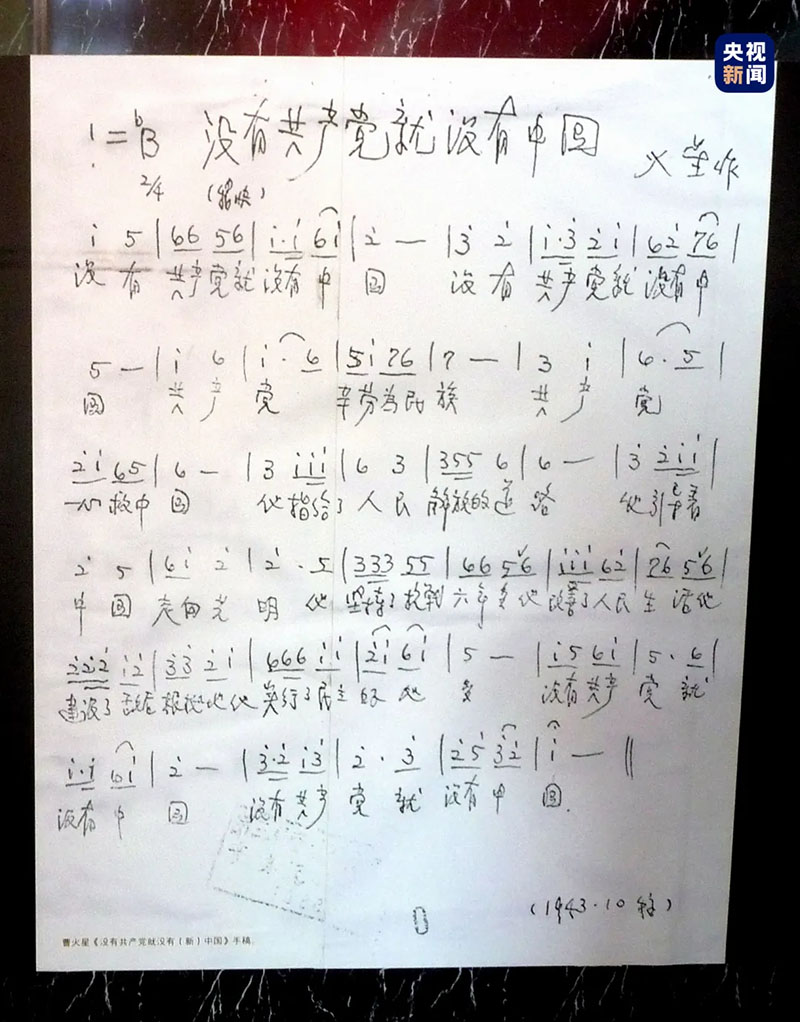 央视
新闻
1=bB 没有共产党就没有中国 火星作
2/4 (稍快)
i 5 | 66 56 | i·i 6i | 2 — | 3 2 | i·3 2i | 62 76 |
没有共产党就没有中国 没有共产党就没有中
5 — | i 6 | i·6 | 5i 76 | 7 — | 3 i | 6·5 |
国 共产党 辛劳为民族 共产党
2i 65 | 6 — | 3 iii | 6 3 | 355 6 | 6 — | 3 2ii |
一心救中国 他指给了人民解放的道路 他引导着
2 5 | 6i 2 | 2·5 | 333 55 | 66 56 | iii 62 | 76 56 |
中国走向光明 他坚持了抗战六年多他改善了人民生活他
222 i2 | 33 2i | 666 ii | 2i 6i | 5 — | i5 6i | 5·6 |
建设了敌后根据地他实行了民主好处多 没有共产党就
i·i 6i | 2 — | 3·2 i3 | 2·3 | 25 32 | i — ‖
没有中国 没有共产党就没有中国.
(1943·10 稿)
曹火星《没有共产党就没有(新)中国》手稿.